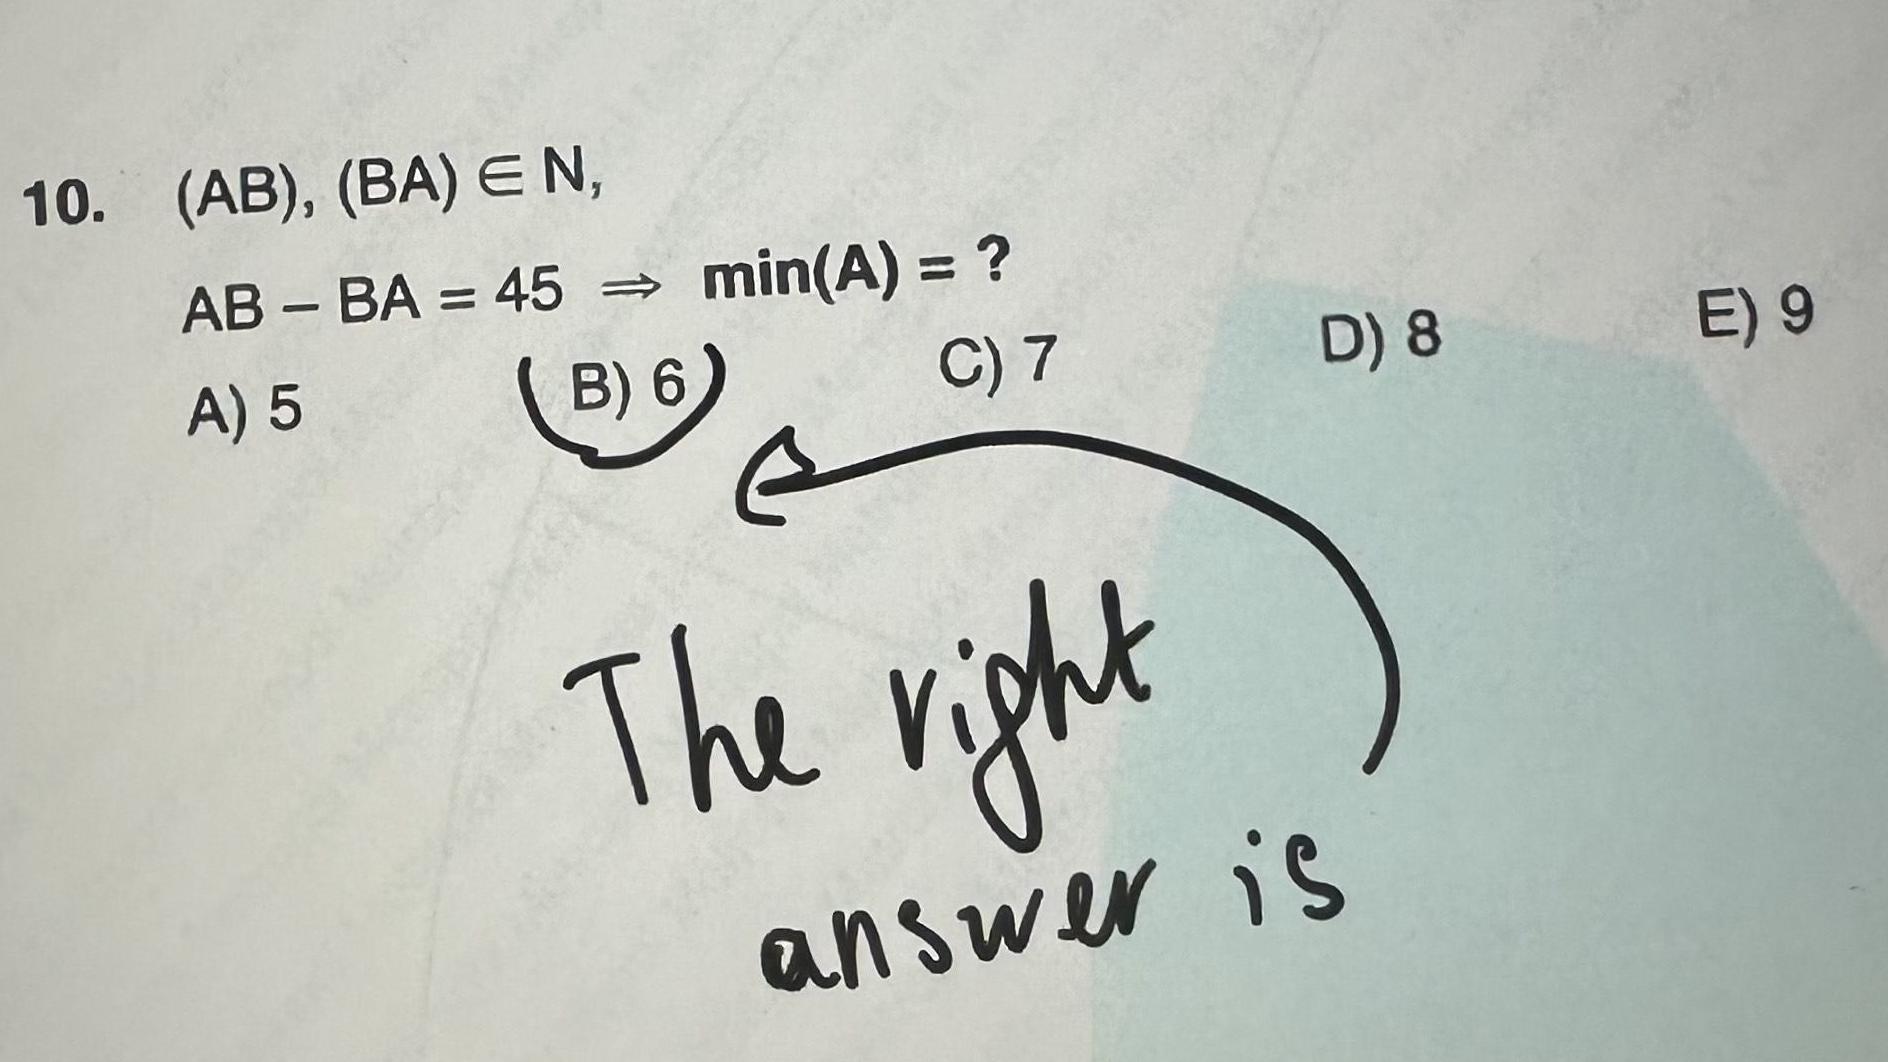 10. (AB), (BA) ∈ N,
AB – BA = 45 ⇒ min(A) = ?
A) 5 B) 6 C) 7 D) 8 E) 9
The right
answer is